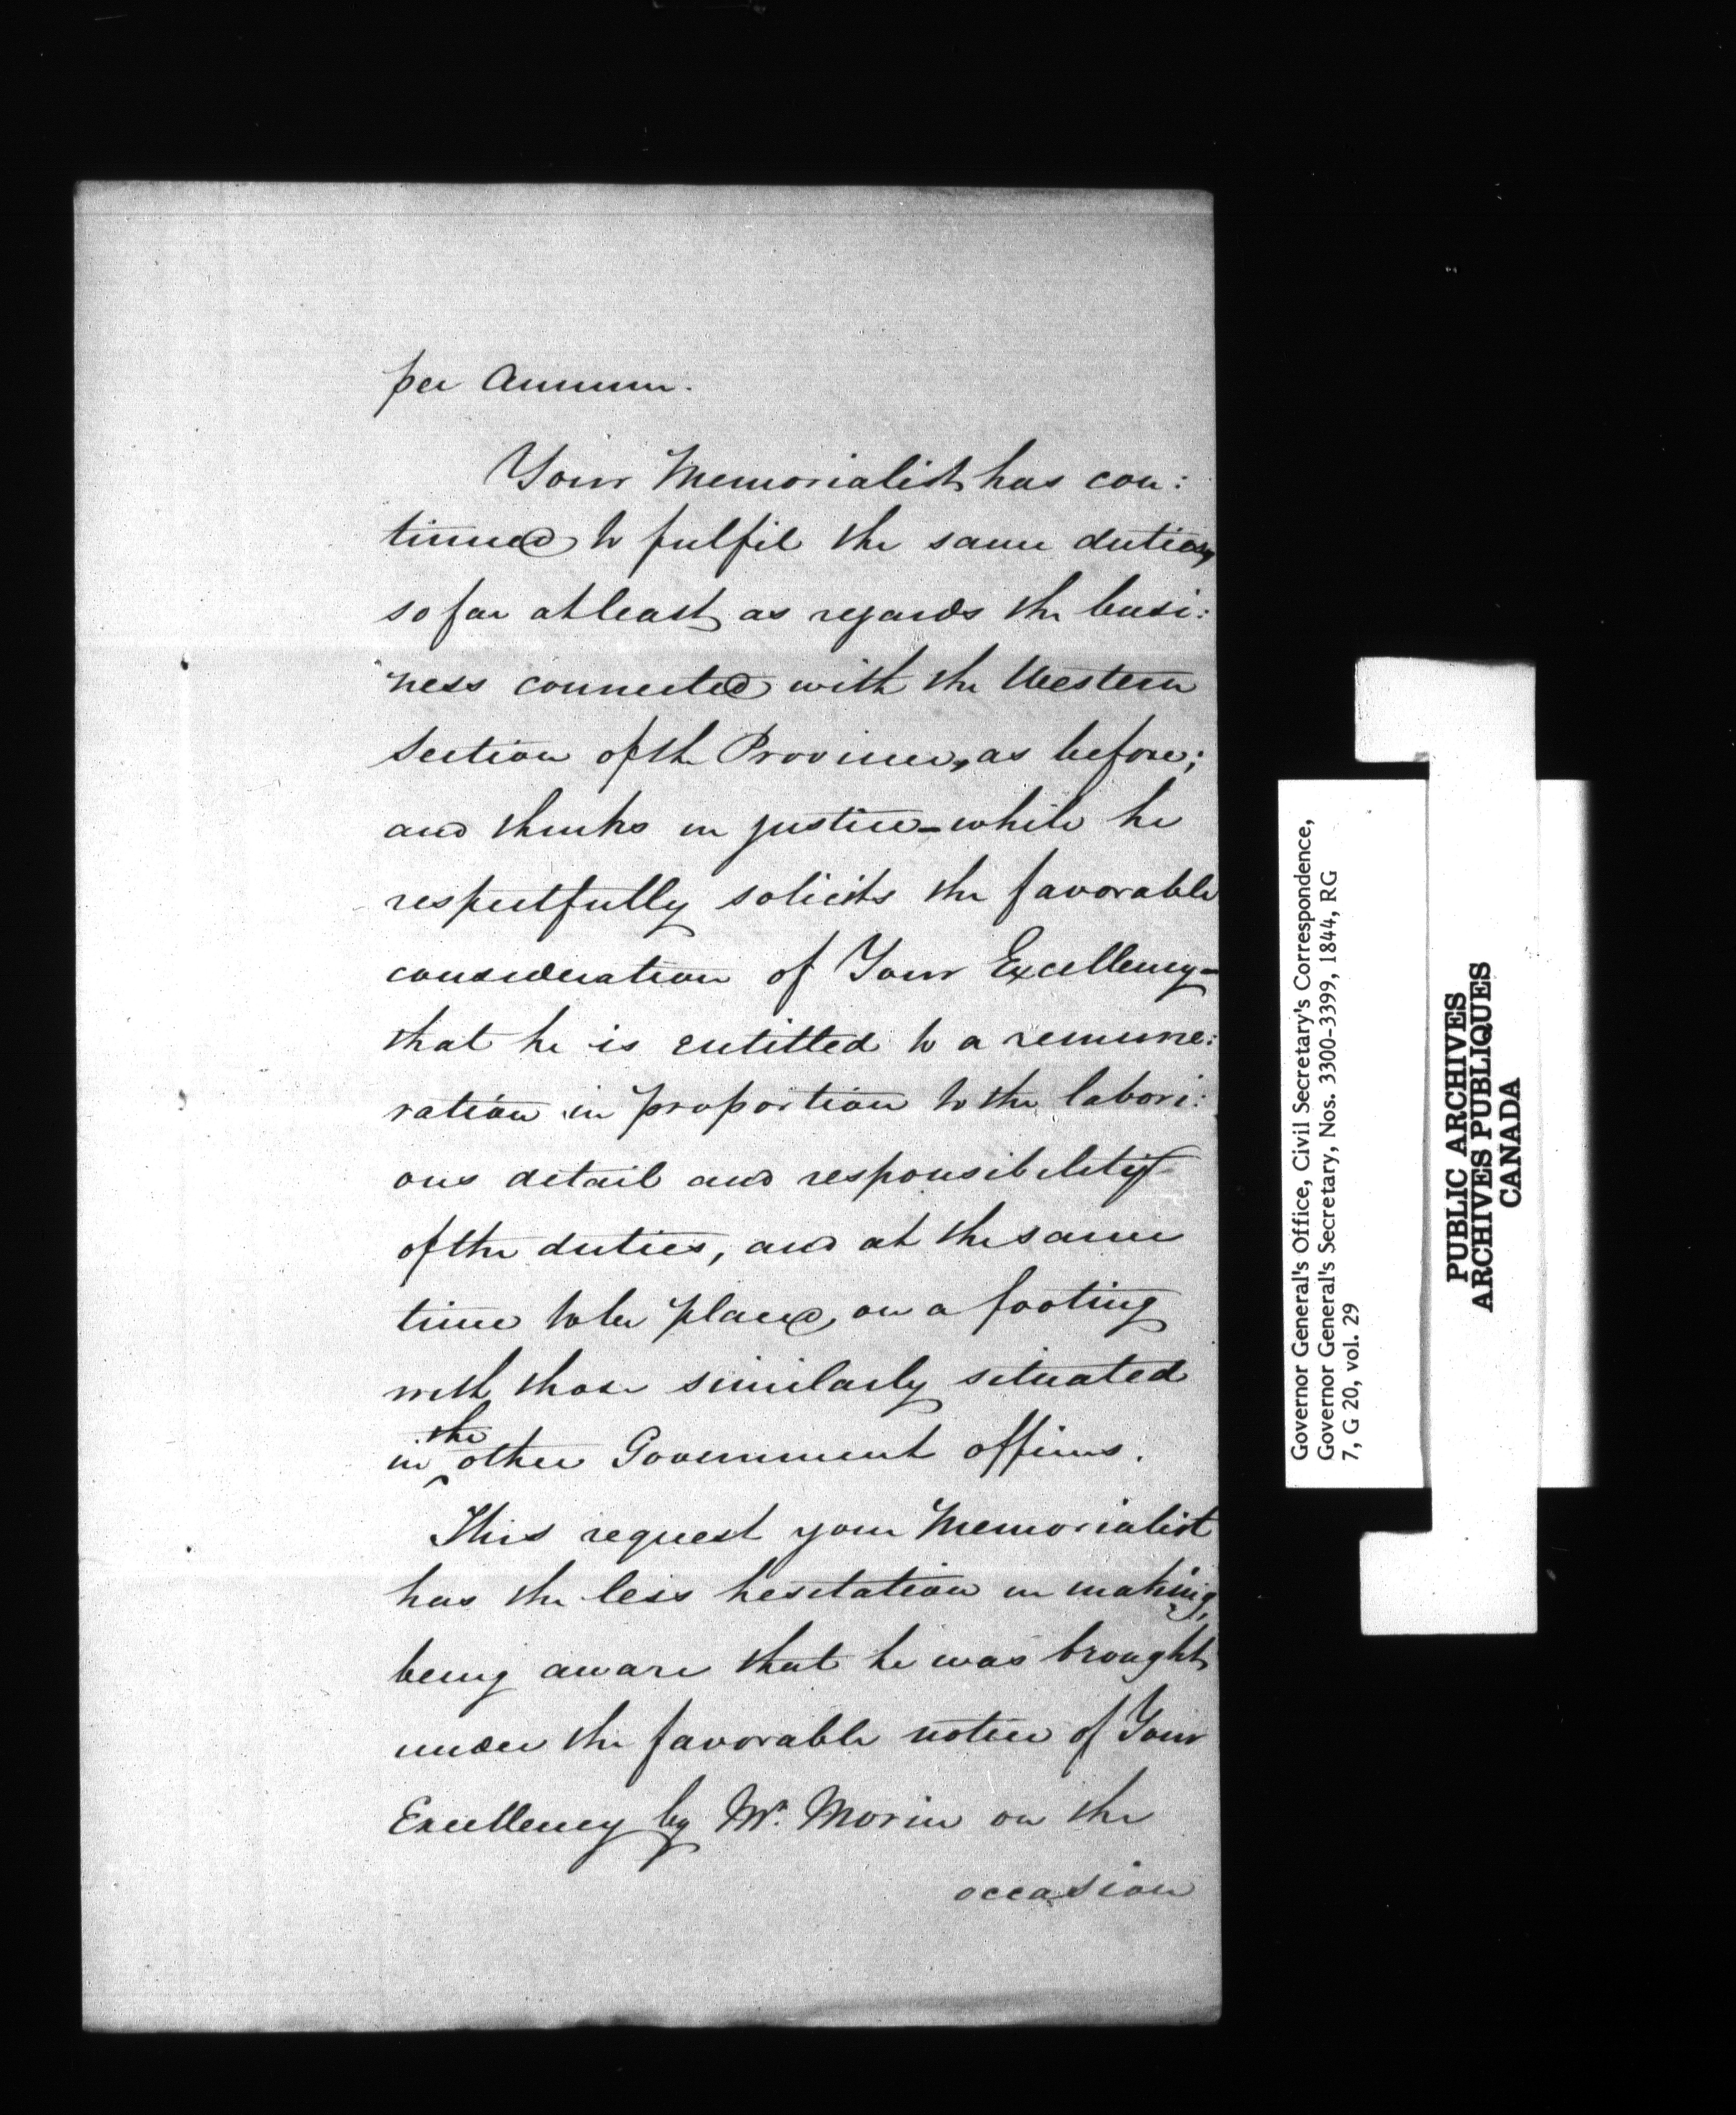 per Annum.
Your Memorialist has con:
tinued to fulfil the same duties,
so far at least as regards the busi:
ness connected with the Western
Section of the Province, as before;
and thinks in justice - while he
respectfully solicits the favorable
consideration of Your Excellency -
that he is entitled to a remune:
ration in proportion to the labori:
ous detail and responsibility
of the duties, and at the same
time to be placed on a footing
with those similarly situated
in the other Government offices.
This request your Memorialist
has the less hesitation in making,
being aware that he was brought
under the favorable notice of Your
Excellency by Mr. Morin on the
occasion
Governor General's Office, Civil Secretary's Correspondence,
Governor General's Secretary, Nos. 3300-3399, 1844, RG
7, G 20, vol. 29
PUBLIC ARCHIVES
ARCHIVES PUBLIQUES
CANADA